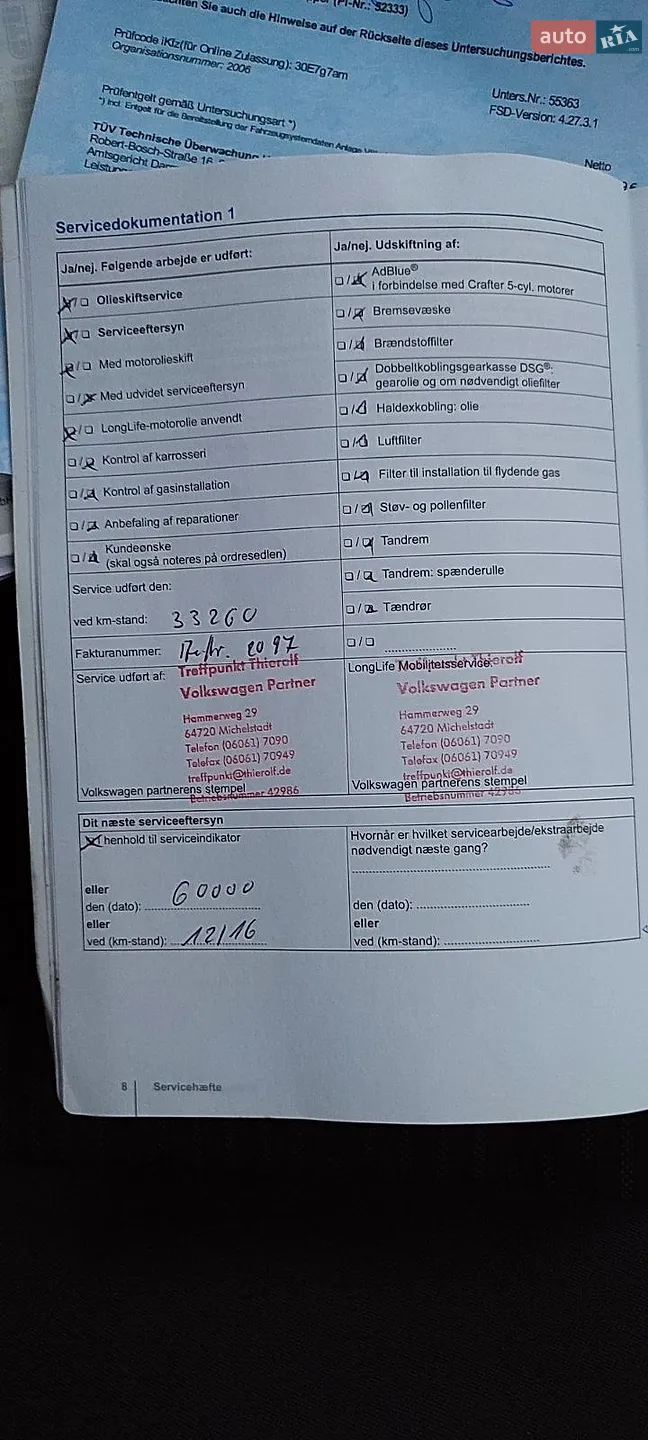 (PI-Nr.: 52333)
Sie auch die Hinweise auf der Rückseite dieses Untersuchungsberichtes.
auto RIA.com
Prüfcode iKfz(für Online Zulassung): 30E7g7am
Organisationsnummer: 2006
Unters.Nr.: 55363
FSD-Version: 4.27.3.1
Prüfentgelt gemäß Untersuchungsart *)
*) incl. Entgelt für die Bereitstellung der Fahrzeugsystemdaten
TÜV Technische Überwachung
Robert-Bosch-Straße 16
Amtsgericht
Netto
Servicedokumentation 1
Ja/nej. Følgende arbejde er udført:
Olieskiftservice
Serviceeftersyn
Med motorolieskift
Med udvidet serviceeftersyn
LongLife-motorolie anvendt
Kontrol af karrosseri
Kontrol af gasinstallation
Anbefaling af reparationer
Kundeønske
(skal også noteres på ordresedlen)
Service udført den:
ved km-stand: 33260
Fakturanummer: 2097
Service udført af:
Treffpunkt Thierolf
Volkswagen Partner
Hammerweg 29
64720 Michelstadt
Telefon (06061) 7090
Telefax (06061) 70949
treffpunkt@thierolf.de
Volkswagen partnerens stempel
Betriebsnummer 42986
Ja/nej. Udskiftning af:
AdBlue®
i forbindelse med Crafter 5-cyl. motorer
Bremsevæske
Brændstoffilter
Dobbeltkoblingsgearkasse DSG®:
gearolie og om nødvendigt oliefilter
Haldexkobling: olie
Luftfilter
Filter til installation til flydende gas
Støv- og pollenfilter
Tandrem
Tandrem: spænderulle
Tændrør
LongLife Mobilitetsservice:
Treffpunkt Thierolf
Volkswagen Partner
Hammerweg 29
64720 Michelstadt
Telefon (06061) 7090
Telefax (06061) 70949
treffpunkt@thierolf.de
Volkswagen partnerens stempel
Betriebsnummer 42986
Dit næste serviceeftersyn
henhold til serviceindikator
eller
den (dato): 60000
eller
ved (km-stand): 12/16
Hvornår er hvilket servicearbejde/ekstraarbejde
nødvendigt næste gang?
den (dato):
eller
ved (km-stand):
8 Servicehæfte